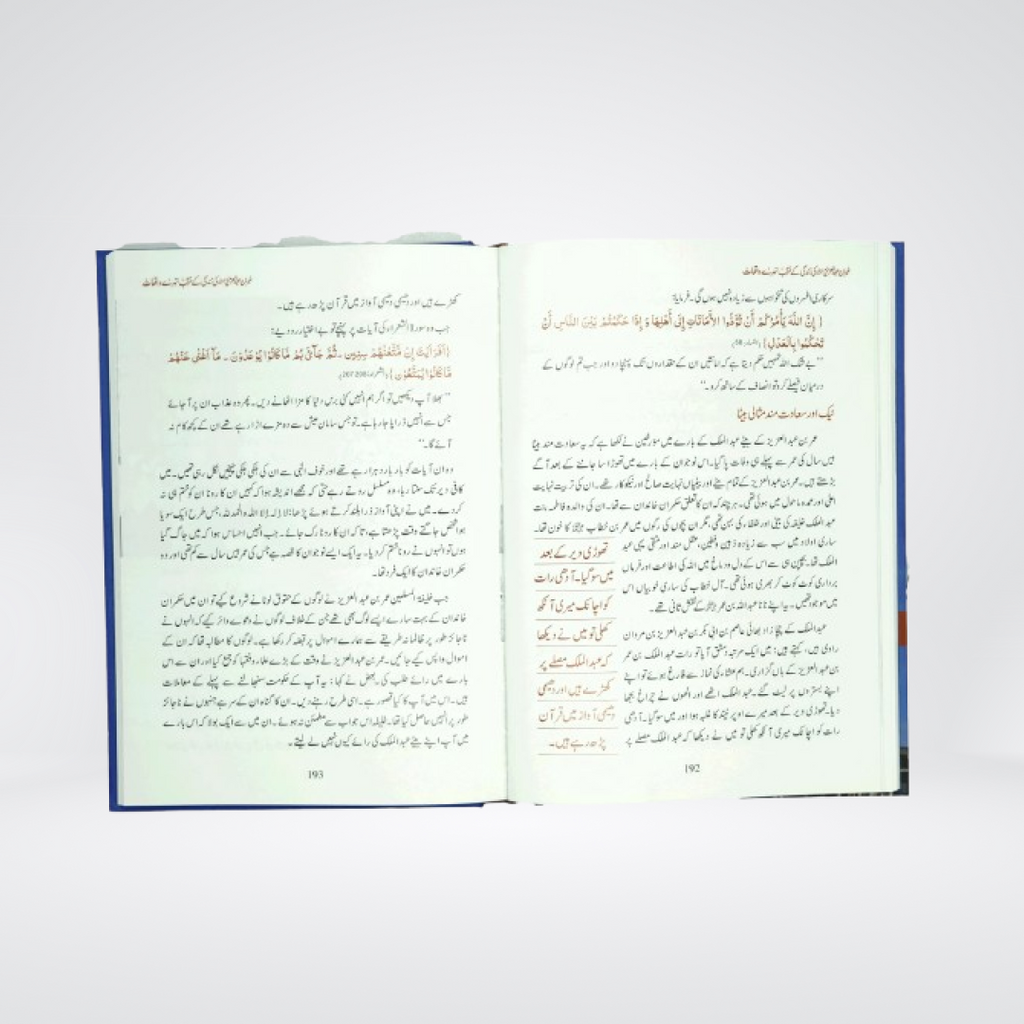 سرکاری افسروں کی تنخواہوں سے زیادہ نہیں ہوں گی۔ فرمایا:
﴿ إِنَّ اللّٰهَ يَأْمُرُكُمْ أَنْ تُؤَدُّوا الأَمَانَاتِ إِلَىٰ أَهْلِهَا وَ إِذَا حَكَمْتُمْ بَيْنَ النَّاسِ أَنْ
تَحْكُمُوا بِالْعَدْلِ ﴾ (النساء: 58)
’’بے شک اللہ تمہیں حکم دیتا ہے کہ امانتیں ان کے حقداروں تک پہنچا دو اور جب تم لوگوں کے
درمیان فیصلے کرو تو انصاف کے ساتھ کرو۔‘‘
نیک اور سعادت مند مثالی بیٹا
عمر بن عبدالعزیز کے بیٹے عبدالملک کے بارے میں مؤرخین نے لکھا ہے کہ یہ سعادت مند بیٹا
بیس سال کی عمر سے پہلے ہی وفات پا گیا۔ اس نوجوان کے بارے میں تھوڑا سا جاننے کے بعد آگے
بڑھتے ہیں۔ عمر بن عبدالعزیز کے تمام بیٹے اور بیٹیاں نہایت صالح اور نیکوکار تھے۔ ان کی تربیت نہایت
اعلی اور عمدہ ماحول میں ہوئی تھی۔ ہر چند کہ ان کا تعلق حکمران خاندان سے تھا۔ ان کی والدہ فاطمہ بنت
عبدالملک خلیفہ کی بیٹی اور خلفاء کی بہن تھی، مگر ان بچوں کی رگوں میں عمر بن خطاب کا خون تھا۔
ساری اولاد میں سب سے زیادہ ذہین و فطین، عقل مند اور متقی یہی عبد
الملک تھا۔ بچپن ہی سے اس کے دل و دماغ میں اللہ کی اطاعت اور فرماں
برداری کوٹ کوٹ کر بھری ہوئی تھی۔ آل خطاب کی ساری خوبیاں اس
میں موجود تھیں۔ یہ اپنے نانا عبداللہ بن عمر کے نقش ثانی تھے۔
عبدالملک کے چچا زاد بھائی عاصم بن ابی بکر بن عبدالعزیز بن مروان
راوی ہیں، کہتے ہیں: میں ایک مرتبہ دمشق آیا تو رات عبدالملک بن عمر
بن عبدالعزیز کے ہاں گزاری۔ ہم عشاء کی نماز سے فارغ ہوئے تو اپنے
اپنے بستروں پر لیٹ گئے۔ عبدالملک اٹھے اور انھوں نے چراغ بجھا
دیا۔ تھوڑی دیر کے بعد میرے اوپر نیند کا غلبہ ہوا اور میں سو گیا۔ آدھی
رات کو اچانک میری آنکھ کھلی تو میں نے دیکھا کہ عبدالملک مصلے پر
تھوڑی دیر کے بعد
میں سو گیا۔ آدھی رات
کو اچانک میری آنکھ
کھلی تو میں نے دیکھا
کہ عبدالملک مصلے پر
کھڑے ہیں اور دھیمی
دھیمی آواز میں قرآن
پڑھ رہے ہیں۔
192
کھڑے ہیں اور دھیمی دھیمی آواز میں قرآن پڑھ رہے ہیں۔
جب وہ سورۃ الشعراء کی آیات پر پہنچے تو بے اختیار رو دیے:
﴿أَفَرَأَيْتَ إِنْ مَّتَّعْنَٰهُمْ سِنِينَ ـ ثُمَّ جَآءَهُمْ مَّا كَانُوا يُوعَدُونَ ـ مَآ أَغْنَىٰ عَنْهُمْ
مَّا كَانُوا يُمَتَّعُونَ﴾ (الشعراء: 205-207)
’’بھلا آپ دیکھیں تو اگر ہم انہیں کئی برس دنیا کا مزا اٹھانے دیں۔ پھر وہ عذاب ان پر آ جائے
جس سے انہیں ڈرایا جا رہا ہے۔ تو جس سامان عیش سے وہ مزے اڑا رہے تھے ان کے کچھ کام نہ
آئے گا۔‘‘
وہ ان آیات کو بار بار دہرا رہے تھے اور خوف الٰہی سے ان کی ہلکی ہلکی چیخیں نکل رہی تھیں۔ میں
کافی دیر تک سنتا رہا، وہ مسلسل روتے رہے حتی کہ مجھے اندیشہ ہوا کہ کہیں ان کا رونا ان کو ختم ہی نہ
کر دے۔ میں نے اپنی آواز ذرا بلند کرتے ہوئے پڑھا: لا إلہ إلا اللہ والحمد للہ، جس طرح ایک سویا
ہوا شخص جاگتے وقت پڑھتا ہے، تاکہ ان کا رونا رک جائے۔ جب انہیں احساس ہوا کہ میں جاگ گیا
ہوں تو انہوں نے رونا ختم کر دیا۔ یہ ایک ایسے نوجوان کا قصہ ہے جس کی عمر بیس سال سے کم تھی اور وہ
حکمران خاندان کا ایک فرد تھا۔
جب خلیفۃ المسلمین عمر بن عبدالعزیز نے لوگوں کے حقوق لوٹانے شروع کیے تو ان میں حکمران
خاندان کے بہت سارے ایسے لوگ بھی تھے جن کے خلاف لوگوں نے دعوے دائر کیے کہ انہوں نے
ناجائز طور پر ظالمانہ طریقے سے ہمارے اموال پر قبضہ کر رکھا ہے۔ لوگوں کا مطالبہ تھا کہ ان کے
اموال واپس کیے جائیں۔ عمر بن عبدالعزیز نے وقت کے بڑے علماء و فقہا کو جمع کیا اور ان سے اس
بارے میں رائے طلب کی۔ بعض نے کہا: یہ آپ کے حکومت سنبھالنے سے پہلے کے معاملات
ہیں۔ اس میں آپ کا کیا قصور ہے۔ اسی طرح رہنے دیں۔ ان کا گناہ ان کے سر ہے جنہوں نے ناجائز
طور پر انہیں حاصل کیا تھا۔ خلیفہ اس جواب سے مطمئن نہ ہوئے۔ ان میں سے ایک بولا کہ اس بارے
میں آپ اپنے بیٹے عبدالملک کی رائے کیوں نہیں لے لیتے۔
193